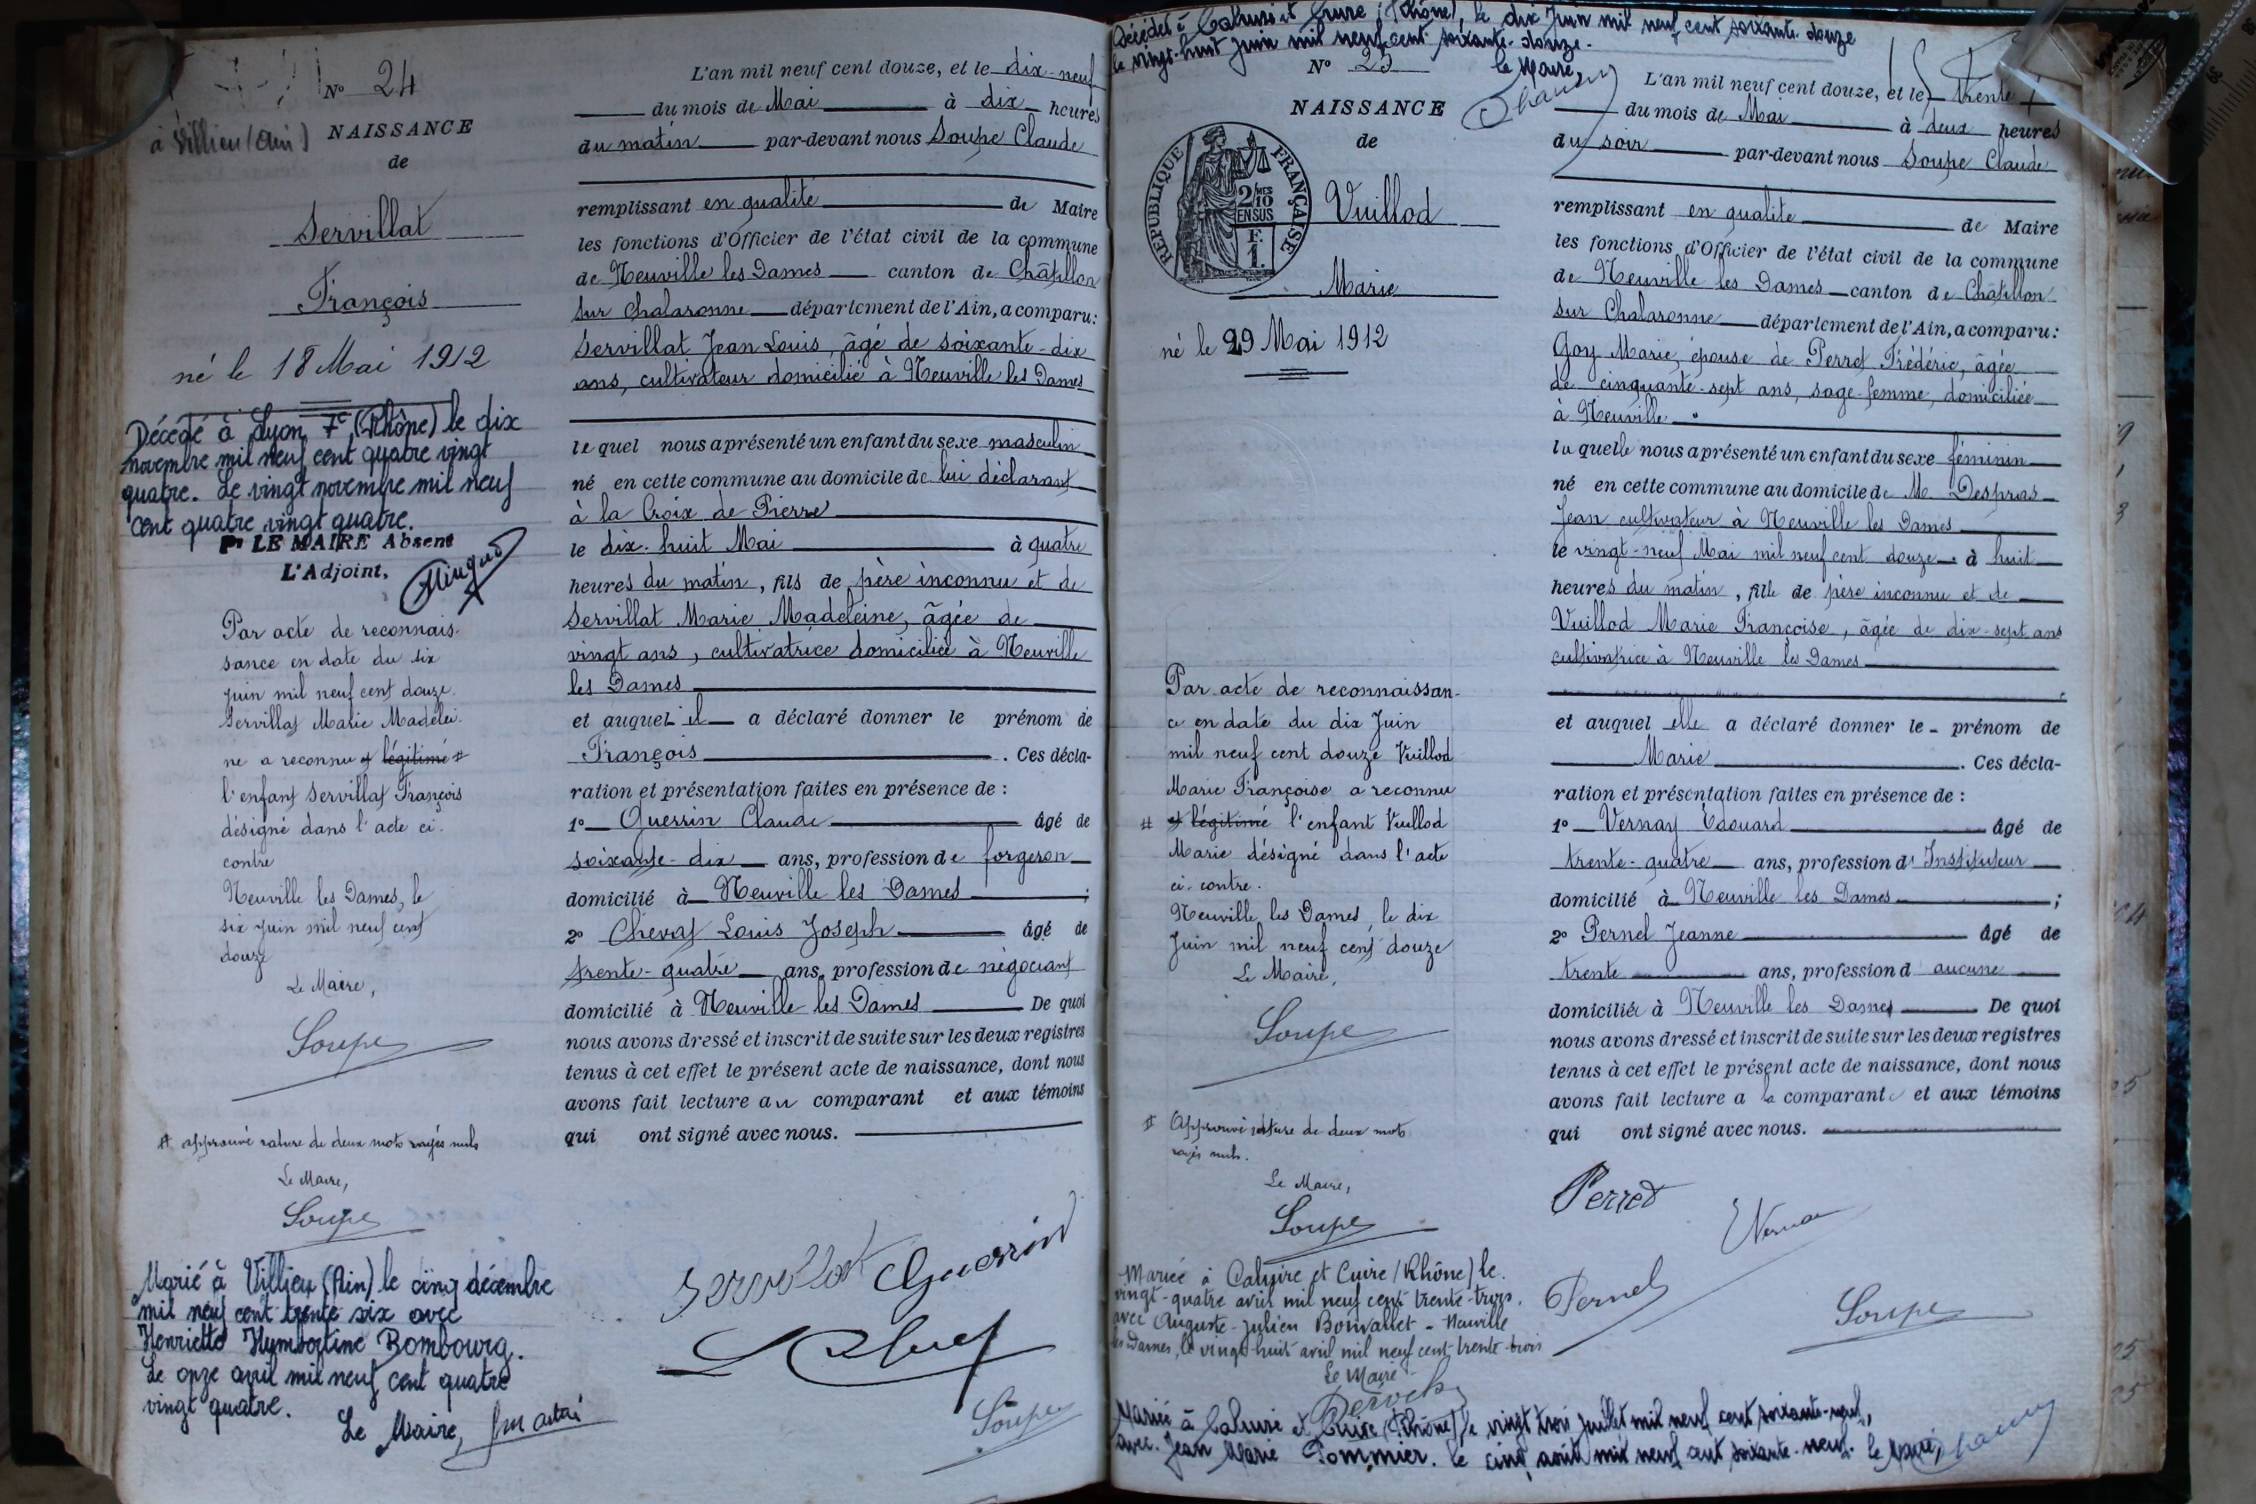 N° 24
à Villieu (Ain)
NAISSANCE
de
Servillat
François
né le 18 Mai 1912
Décédé à Lyon 7e (Rhône) le dix
novembre mil neuf cent quatre vingt
quatre. Le vingt novembre mil neuf
cent quatre vingt quatre.
Pr LE MAIRE Absent
L'Adjoint,
Par acte de reconnais-
sance en date du six
juin mil neuf cent douze
Servillat Marie Madelei-
ne a reconnu et légitimé #
l'enfant Servillat François
désigné dans l'acte ci-
contre
Neuville les Dames, le
six juin mil neuf cent
douze
Le Maire,
Soupe
# approuvé rature de deux mots rayés nuls
Le Maire,
Soupe
Marié à Villieu (Ain) le cinq décembre
mil neuf cent trente six avec
Henriette Humbertine Bombourg.
Le onze avril mil neuf cent quatre
vingt quatre.
Le Maire,
L'an mil neuf cent douze, et le dix-neuf
du mois de Mai à dix heures
du matin par-devant nous Soupe Claude
remplissant en qualité de Maire
les fonctions d'Officier de l'état civil de la commune
de Neuville les Dames canton de Châtillon
sur Chalaronne département de l'Ain, a comparu:
Servillat Jean Louis, âgé de soixante-dix
ans, cultivateur domicilié à Neuville les Dames
le quel nous a présenté un enfant du sexe masculin
né en cette commune au domicile de lui déclarant
à la Croix de Pierre
le dix-huit Mai à quatre
heures du matin, fils de père inconnu et de
Servillat Marie Madeleine, âgée de
vingt ans, cultivatrice domiciliée à Neuville
les Dames
et auquel il a déclaré donner le prénom de
François. Ces décla-
ration et présentation faites en présence de :
1° Querrin Claude âgé de
soixante-dix ans, profession de forgeron
domicilié à Neuville les Dames ;
2° Chevat Louis Joseph âgé de
trente-quatre ans, profession de négociant
domicilié à Neuville les Dames De quoi
nous avons dressé et inscrit de suite sur les deux registres
tenus à cet effet le présent acte de naissance, dont nous
avons fait lecture au comparant et aux témoins
qui ont signé avec nous.
Servillat Guerrin
Soupe
Décédée à Caluire et Cuire (Rhône), le dix Juin mil neuf cent soixante-douze
le vingt-huit juin mil neuf cent soixante-douze.
le Maire,
N° 25
NAISSANCE
de
RÉPUBLIQUE FRANÇAISE
2/10 MES
EN SUS
F.
1.
Vuillod
Marie
né le 29 Mai 1912
Par acte de reconnaissan-
ce en date du dix Juin
mil neuf cent douze Vuillod
Marie Françoise a reconnu
# et légitimé l'enfant Vuillod
Marie désigné dans l'acte
ci-contre.
Neuville les Dames, le dix
Juin mil neuf cent douze
Le Maire,
Soupe
# Approuvé rature de deux mots
rayés nuls.
Le Maire,
Soupe
Mariée à Caluire et Cuire (Rhône) le
vingt-quatre avril mil neuf cent trente-trois.
avec Auguste-Julien Bonvallet - Neuville
les Dames, le vingt-huit avril mil neuf cent trente-trois
Le Maire
Mariée à Caluire et Cuire (Rhône) le vingt trois juillet mil neuf cent soixante-neuf,
avec Jean Marie Pommier. le cinq août mil neuf cent soixante-neuf. le Maire,
L'an mil neuf cent douze, et le trente
du mois de Mai à deux heures
du soir par-devant nous Soupe Claude
remplissant en qualité de Maire
les fonctions d'Officier de l'état civil de la commune
de Neuville les Dames canton de Châtillon
sur Chalaronne département de l'Ain, a comparu:
Goy Marie, épouse de Perret Frédéric, âgée
de cinquante-sept ans, sage-femme, domiciliée
à Neuville
la quelle nous a présenté un enfant du sexe féminin
né en cette commune au domicile de M. Despras
Jean cultivateur à Neuville les Dames
le vingt-neuf Mai mil neuf cent douze à huit
heures du matin, fille de père inconnu et de
Vuillod Marie Françoise, âgée de dix-sept ans
cultivatrice à Neuville les Dames
et auquel elle a déclaré donner le prénom de
Marie. Ces décla-
ration et présentation faites en présence de :
1° Vernay Edouard âgé de
trente-quatre ans, profession d'Instituteur
domicilié à Neuville les Dames ;
2° Pernel Jeanne âgé de
trente ans, profession d aucune
domiciliée à Neuville les Dames De quoi
nous avons dressé et inscrit de suite sur les deux registres
tenus à cet effet le présent acte de naissance, dont nous
avons fait lecture a la comparante et aux témoins
qui ont signé avec nous.
Perret
Pernel
Soupe